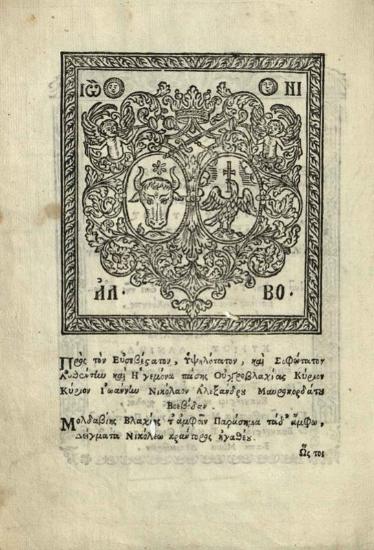 ΙΩ ΝΙ
ΑΛ · ΒΟ ·
Πρὸς τὸν Εὐσεβέςατον, Ὑψηλότατον, καὶ Σοφώτατον
Αὐθέντην καὶ Ἡγεμόνα πάσης Οὐγγροβλαχίας Κύριον
Κύριον Ἰωάννην Νικόλαον Ἀλεξάνδρου Μαυροκορδάτον
Βοεβόδαν.
Μολδαβίης Βλαχίης τ' ἀμφοῖν Παράσημα τάδ' ἄμφω,
Δείγματα Νικολέω κράντορος ἠγαθέου.
Ὥς τοι